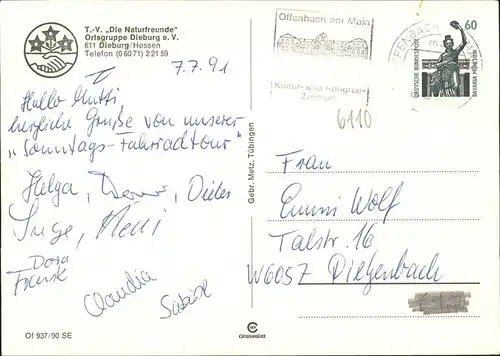 T.-V. „Die Naturfreunde"
Ortsgruppe Dieburg e. V.
611 Dieburg/Hessen
Telefon (0 60 71) 2 21 59
7.7.91
Hallo Mutti,
herzliche Grüße von unserer
„Sonntags-Fahrradtour"
Helga, Dieter
Inge, Heni
Dora
Frank
Claudia
Sabine
Of 937/90 SE
Gebr. Metz, Tübingen
Offenbach am Main
Kultur- und Kongreß-
Zentrum
6110
60
DEUTSCHE BUNDESPOST
BAVARIA MÜNCHEN
Frau
Emmi Wolf
Talstr. 16
W6057 Dietzenbach